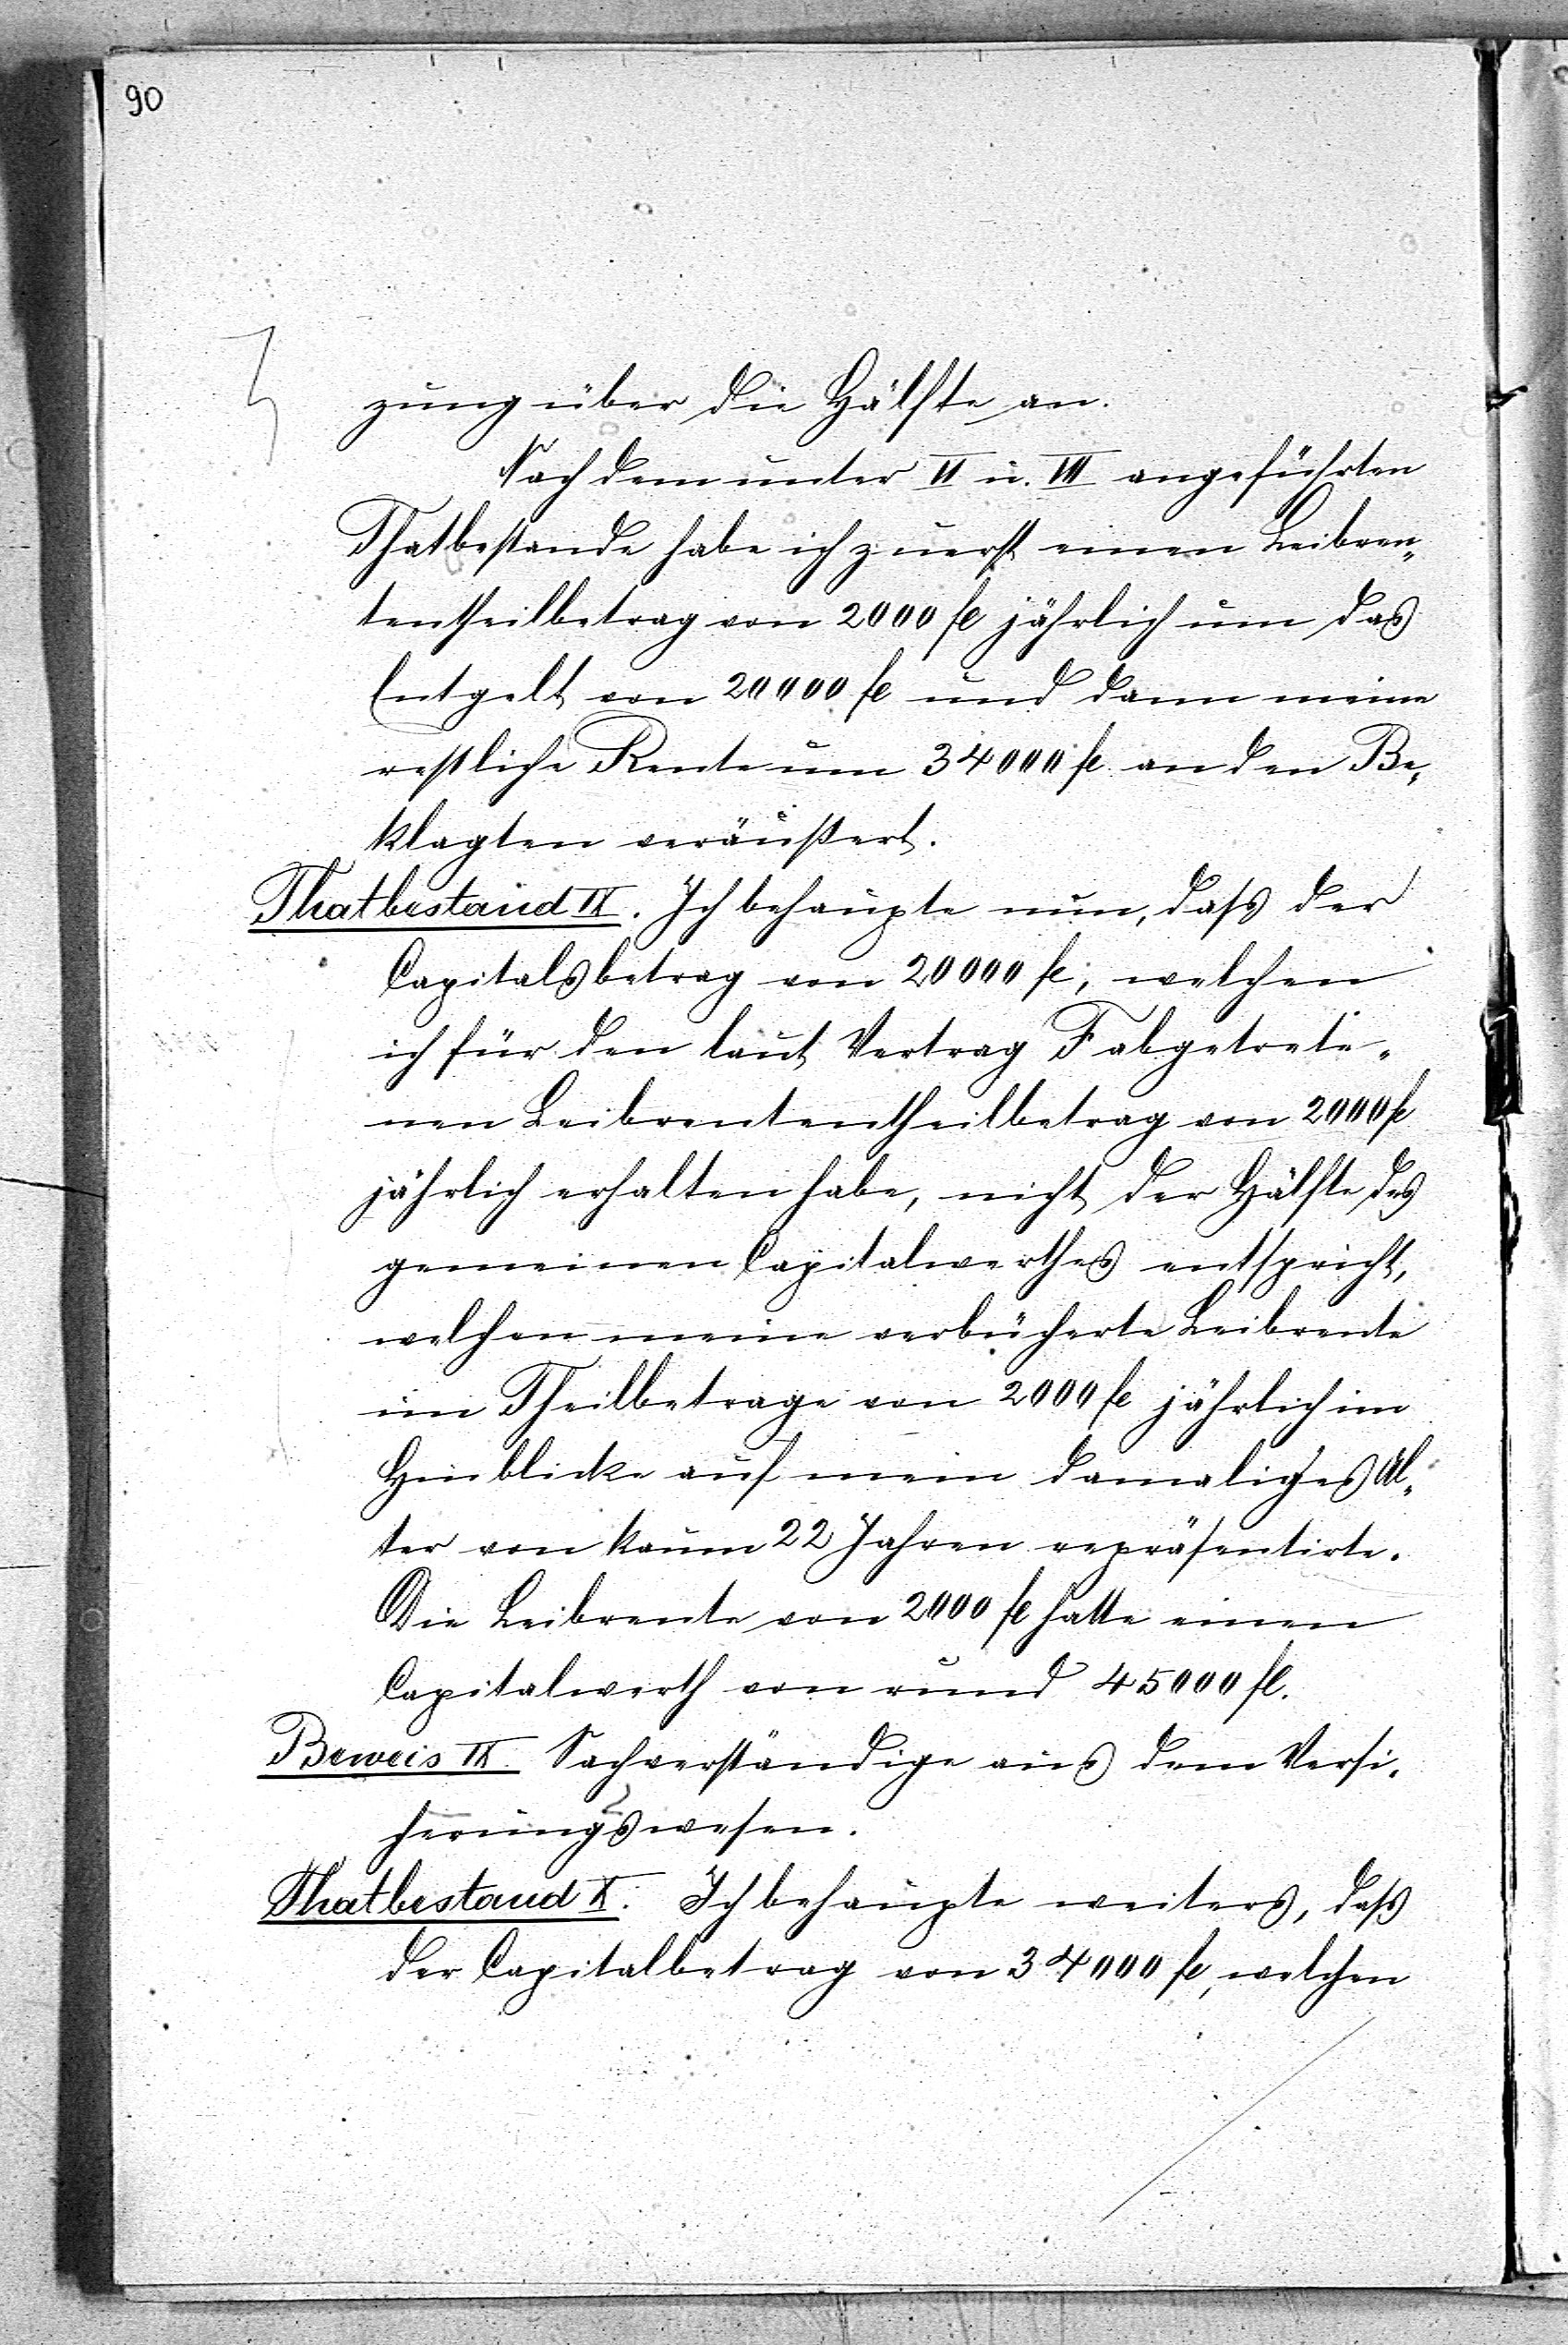 90
zung über die Hälfte an.
Nach dem unter VI u. VII angeführten
Thatbestande habe ich zuerst einen Leibren„
tentheilbetrag von 2000 fl jährlich um das
Entgelt von 20000 fl und dann meine
restliche Rente um 34000 fl an den Be„
klagten veräußert.
Thatbestand IX. Ich behaupte nun, daſs der
Capitalsbetrag von 20000 fl, welchen
ich für den laut Vertrag F abgetrete„
nen Leibrententheilbetrag von 2000 fl
jährlich erhalten habe, nicht der Hälfte des
gemeinen Capitalwerthes entspricht,
welchen meine verbücherte Leibrente
im Theilbetrage von 2000 fl jährlich im
Hinblicke auf mein damaliges Al„
ter von kaum 22 Jahren repräsentirte.
Die Leibrente von 2000 fl hatte einen
Capitalwerth von rund 45000 fl.
Beweis IX. Sachverständige aus dem Versi„
cherungswesen.
Thatbestand X. Ich behaupte weiters, daſs
der Capitalbetrag von 34000 fl, welchen